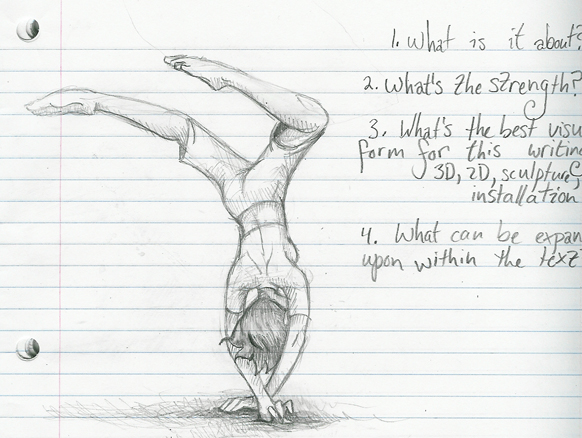 1. What is it about?
2. What's the strength?
3. What's the best visu
form for this writing
3D, 2D, sculpture,
installation
4. What can be expan
upon within the text